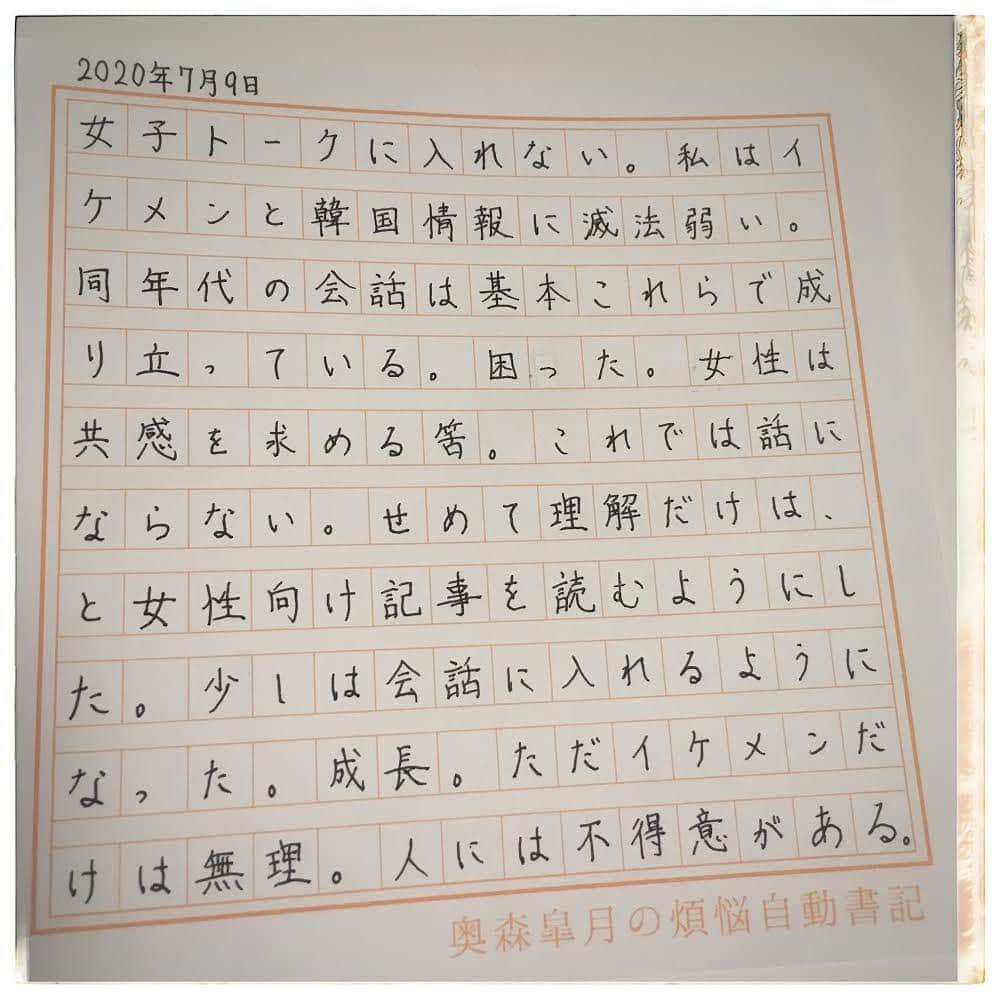 2020年7月9日
女子トークに入れない。私はイ
ケメンと韓国情報に滅法弱い。
同年代の会話は基本これらで成
り立っている。困った。女性は
共感を求める筈。これでは話に
ならない。せめて理解だけは、
と女性向け記事を読むようにし
た。少しは会話に入れるように
なった。成長。ただイケメンだ
けは無理。人には不得意がある。
奥森皐月の煩悩自動書記